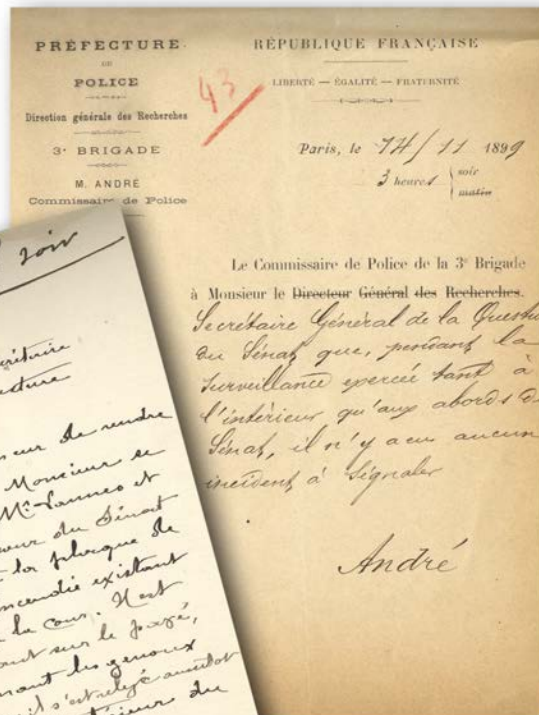 PRÉFECTURE
DE
POLICE
Direction générale des Recherches
3e BRIGADE
M. ANDRÉ
Commissaire de Police
43
RÉPUBLIQUE FRANÇAISE
LIBERTÉ — ÉGALITÉ — FRATERNITÉ
Paris, le 14/11 1899
3 heures soir
matin
Le Commissaire de Police de la 3e Brigade
à Monsieur le Directeur Général des Recherches.
Secrétaire Général de la Questu
du Sénat que, pendant la
surveillance exercée tant à
l'intérieur qu'aux abords du
Sénat, il n'y a eu aucun
incident à signaler
André
soir
crétaire
esture
neur de rendre
Monsieur
Mr et
du Sénat
la plaque de
incendie existant
la cour. Il est
sur le pavé,
les genoux
s'est relevé aussitôt
du